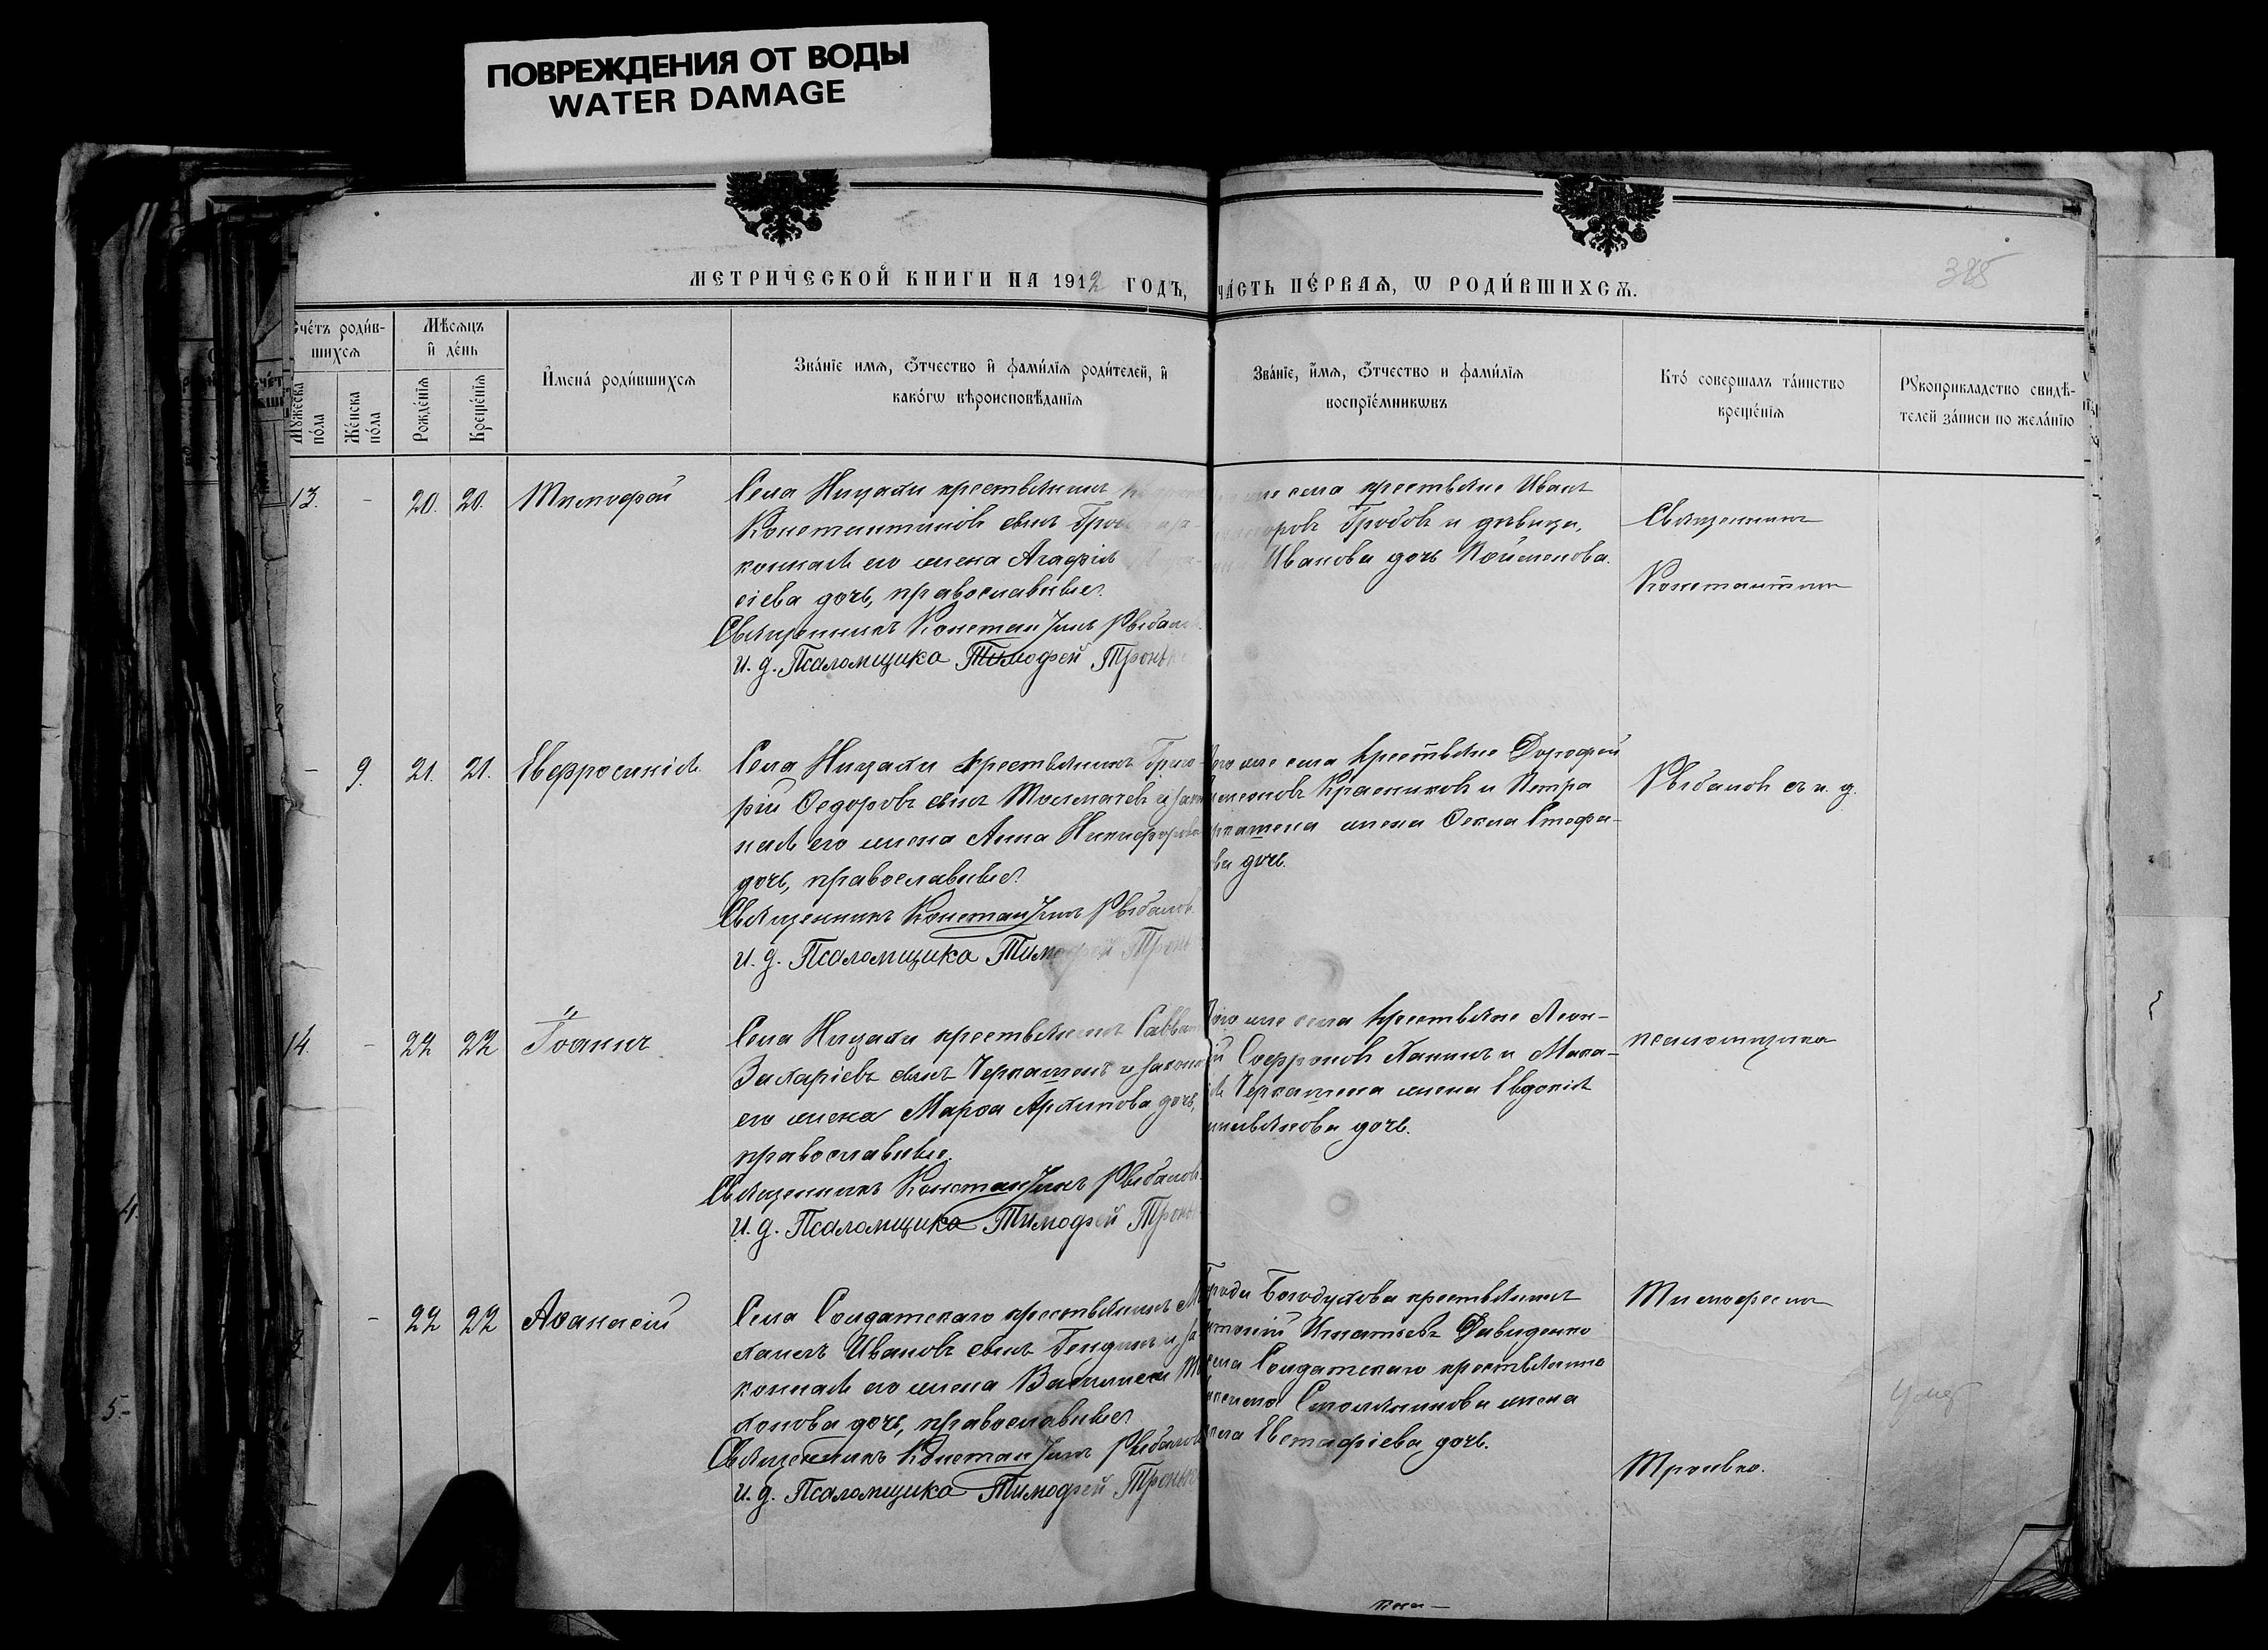 ПОВРЕЖДЕНИЯ ОТ ВОДЫ
WATER DAMAGE
МЕТРИЧЕСКОЙ КНИГИ НА 1912 ГОДЪ, ЧАСТЬ ПЕРВАЯ, Ѡ РОДИВШИХСЯ.
385
Счетъ родив-
шихся
Мужеска пола
Женска пола
Мѣсяцъ и день
Рожденія
Крещенія
Имена родившихся
Званіе имя, отчество и фамилія родителей, и
какогѡ вѣроисповѣданія
Званіе, имя, отчество и фамилія
воспріемникѡвъ
Кто совершалъ таинство
крещенія
Рукоприкладство свидѣ-
телей записи по желанію
13. - 20. 20. Тимофей
Села Ницахи крестьянинъ
Константиновъ сынъ
конная его жена Агафія
сіева дочь, православные.
Священникъ Константинъ Рыбалов
и. д. Псаломщика Тимофей Тронь
же села крестьяне Иванъ
Гробовъ и дѣвица,
Иванова дочь Пойменова.
Священникъ
Константинъ
- 9. 21. 21. Евфросинія.
Села Ницахи крестьянинъ Григо-
рій Ѳедоровъ сынъ Толмачевъ и зако
ная его жена Анна Никифорова
дочь, православные.
Священникъ Константинъ Рыбалов.
и. д. Псаломщика Тимофей Тронь
того же села крестьяне Дорофей
Красниковъ и Петра
жена Ѳекла Стефа-
ва дочь.
Рыбаловъ съ и. д.
14. - 22 22 Іоаннъ
Села Ницахи крестьянинъ Савва
Захаріевъ сынъ Черкашенъ и законн
его жена Марѳа Архипова дочь,
православные.
Священникъ Константинъ Рыбалов
и. д. Псаломщика Тимофей Тронь
того же села крестьяне Леон-
й Софроновъ Ханинъ и Мака-
Черкашена жена Евдокія
дочь.
псаломщика
- 22 22 Аѳанасій
Села Солдатскаго крестьянинъ Ми
хаилъ Ивановъ сынъ Гендинъ и за
конная его жена Василиса Ти
хонова дочь, православные.
Священникъ Константинъ Рыбалов
и. д. Псаломщика Тимофей Тронько
Города Богодухова крестьянинъ
Игнатьевъ Давиденко
села Солдатскаго крестьянина
Столяникова жена
Евстафіева дочь.
Тимофеемъ
Тронько.
Умер